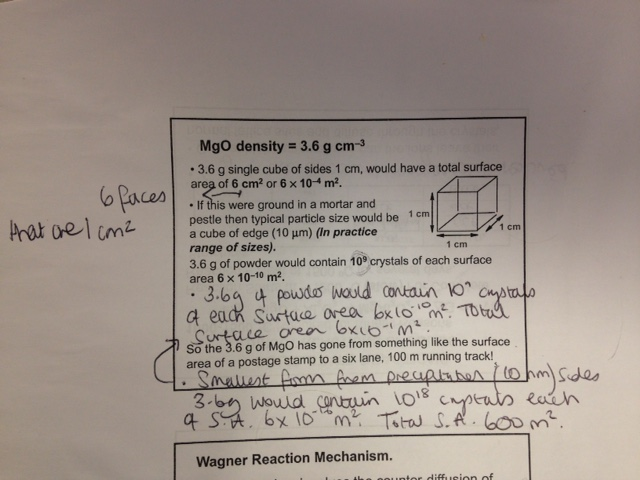 MgO density = 3.6 g cm⁻³
• 3.6 g single cube of sides 1 cm, would have a total surface
area of 6 cm² or 6 x 10⁻⁴ m².
6 faces
that are 1 cm²
• If this were ground in a mortar and
pestle then typical particle size would be
a cube of edge (10 µm) (In practice
range of sizes).
1 cm
1 cm
1 cm
3.6 g of powder would contain 10⁹ crystals of each surface
area 6 x 10⁻¹⁰ m².
• 3.6g of powder would contain 10⁹ crystals
of each surface area 6x10⁻¹⁰ m². Total
Surface area 6x10⁻¹ m².
So the 3.6 g of MgO has gone from something like the surface
area of a postage stamp to a six lane, 100 m running track!
• Smallest form from precipitation (10 nm) sides
3.6g would contain 10¹⁸ crystals each
of S.A. 6x10⁻¹⁶ m². Total S.A. 600 m².
Wagner Reaction Mechanism.